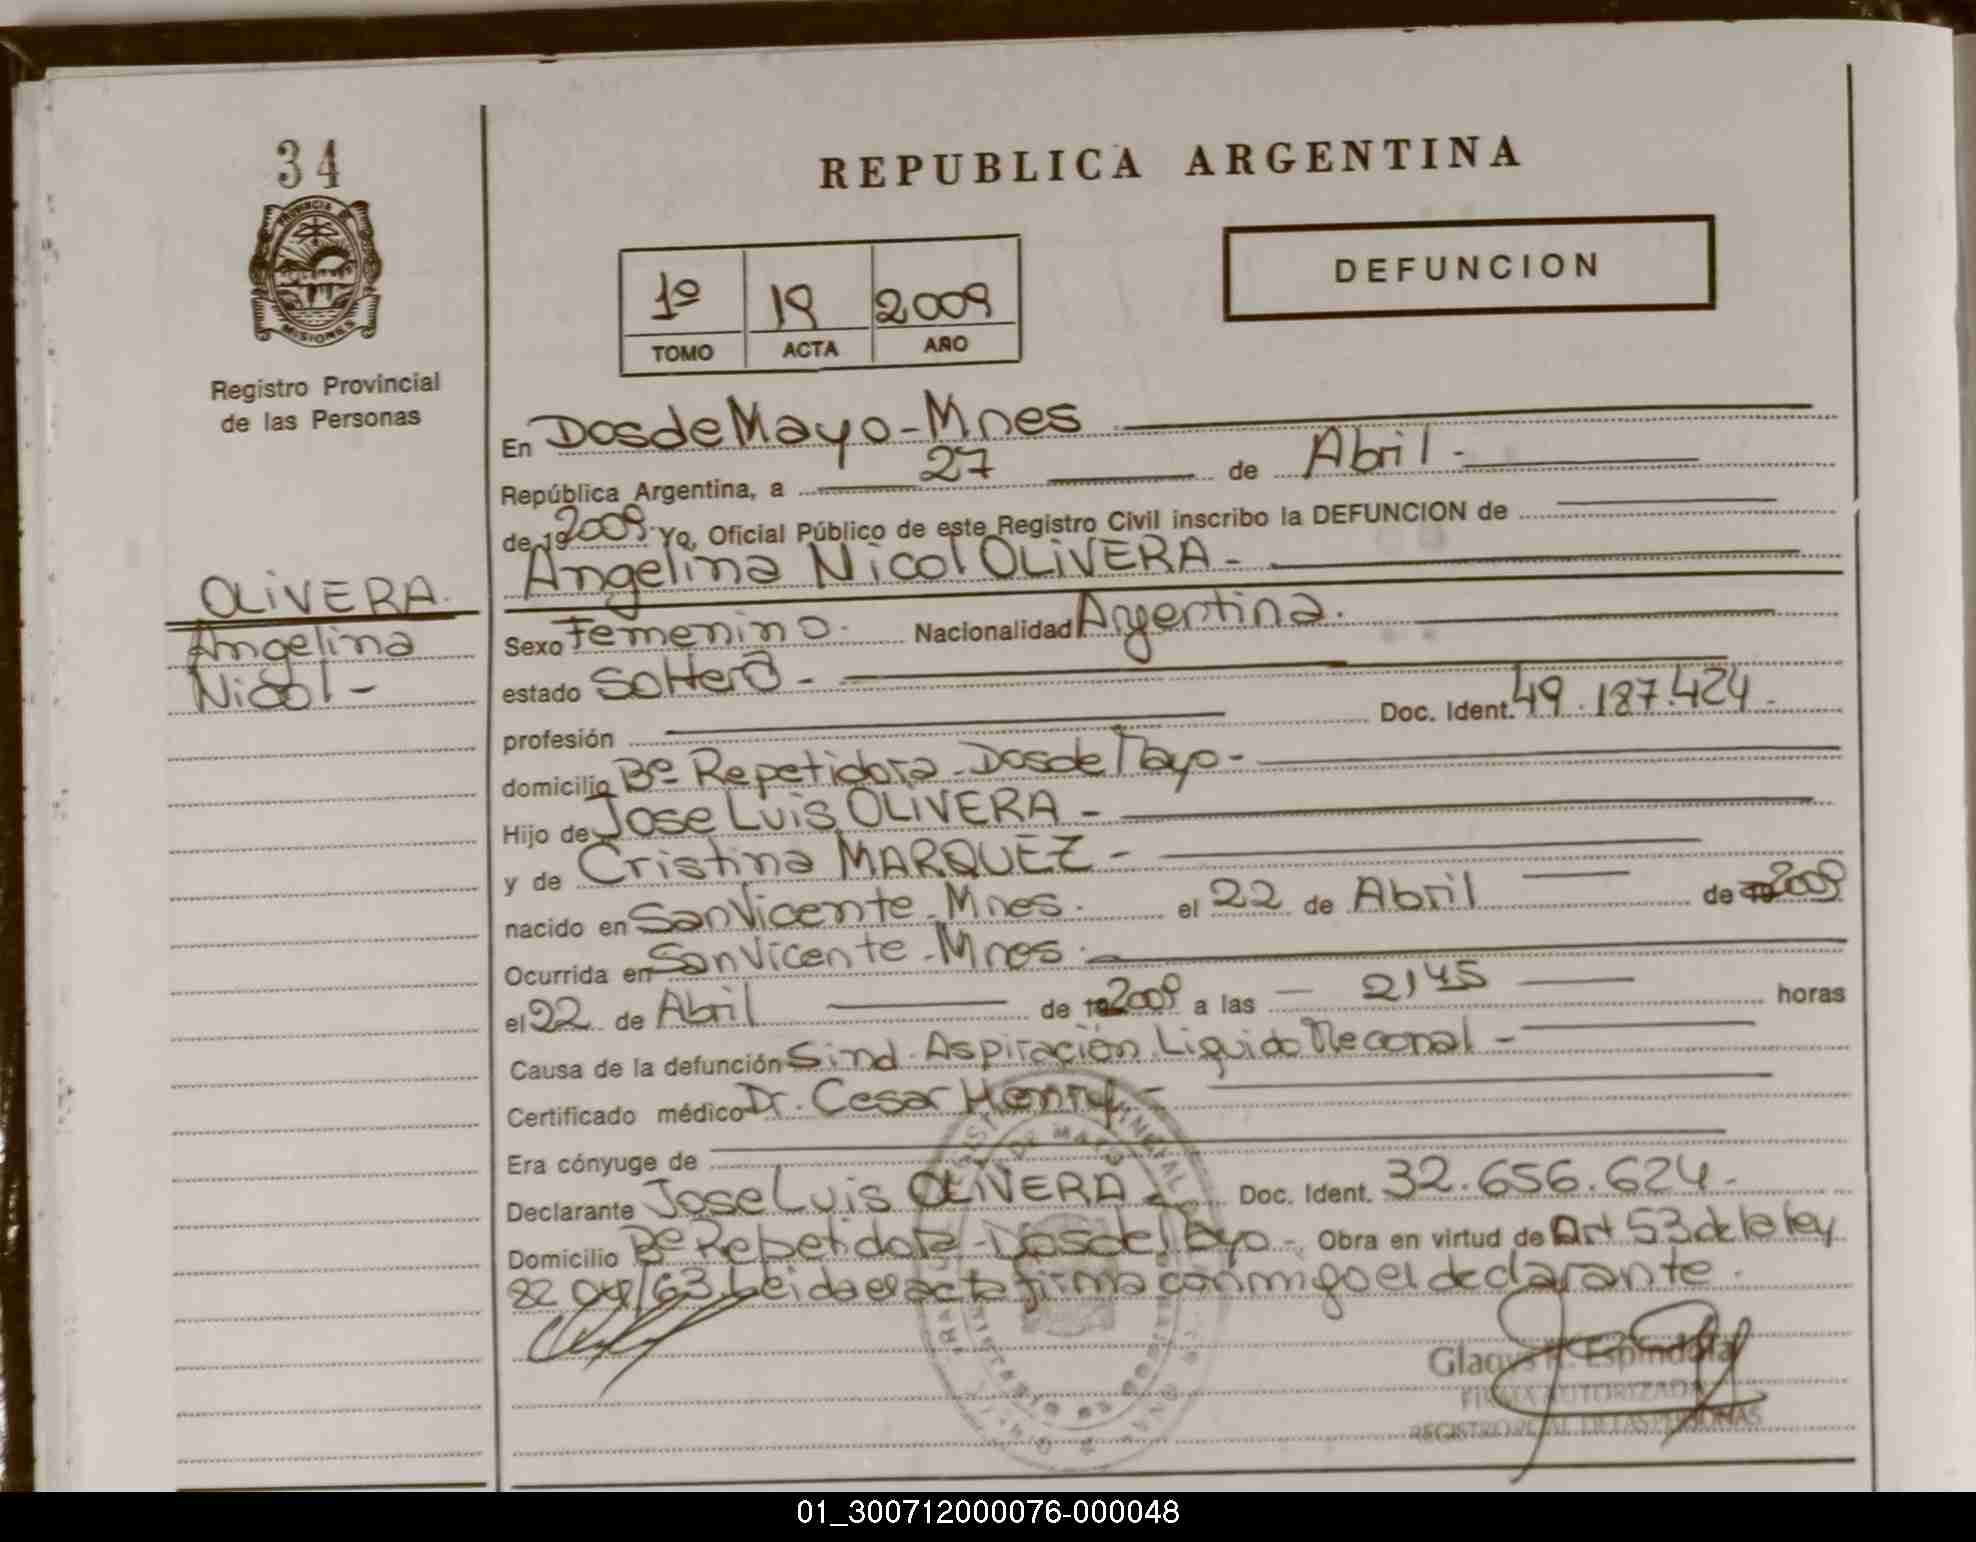 34
REPUBLICA ARGENTINA
PROVINCIA DE
MISIONES
DEFUNCION
1º 19 2009
TOMO ACTA AÑO
Registro Provincial
de las Personas
En Dos de Mayo - Mnes
República Argentina, a 27 de Abril -
de 19 2009. Yo, Oficial Público de este Registro Civil inscribo la DEFUNCION de
Angelina Nicol OLIVERA -
OLIVERA.
Angelina
Nicol -
Sexo Femenino. Nacionalidad Argentina.
estado Soltera -
profesión Doc. Ident. 49.187.424 -
domicilio Bº Repetidora - Dos de Mayo -
Hijo de Jose Luis OLIVERA -
y de Cristina MARQUEZ -
nacido en San Vicente - Mnes. el 22 de Abril de 19 2009
Ocurrida en San Vicente - Mnes.
el 22 de Abril de 19 2009 a las - 2,45 horas
Causa de la defunción Sind. Aspiración Liquido Meconal -
Certificado médico Dr. Cesar Henry. -
Era cónyuge de
Declarante Jose Luis OLIVERA - Doc. Ident. 32.656.624 -
Domicilio Bº Repetidora - Dos de Mayo - Obra en virtud de Art 53 de la ley
82 /63. Leida el acta firma conmigo el declarante.
Gladys Espindola
FIRMA AUTORIZADA
REGISTRO PCIAL. DE LAS PERSONAS
01_300712000076-000048